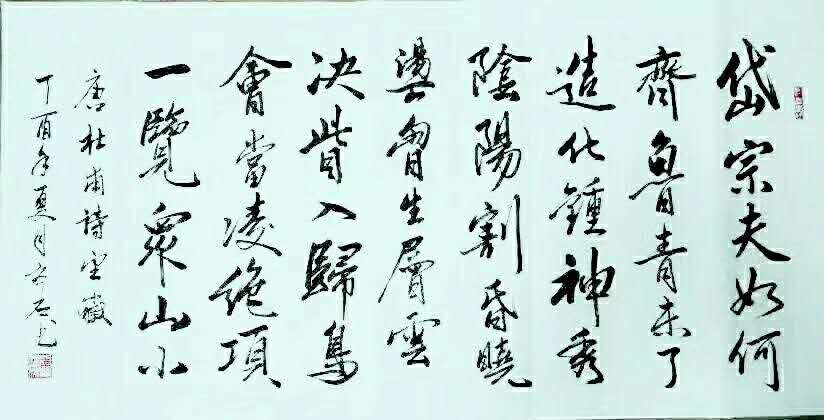 岱宗夫如何
齊魯青未了
造化鍾神秀
陰陽割昏曉
盪胷生層雲
决眥入歸鳥
會當凌絶頂
一覽眾山小
唐杜甫詩望嶽
丁酉年夏月石書